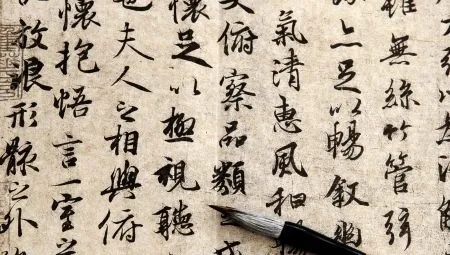 雖無絲竹管弦
亦足以暢敘幽
氣清惠風和
大俯察品類
懷足以極視聽
也夫人之相與俯
懷抱悟言一室之
放浪形骸之外